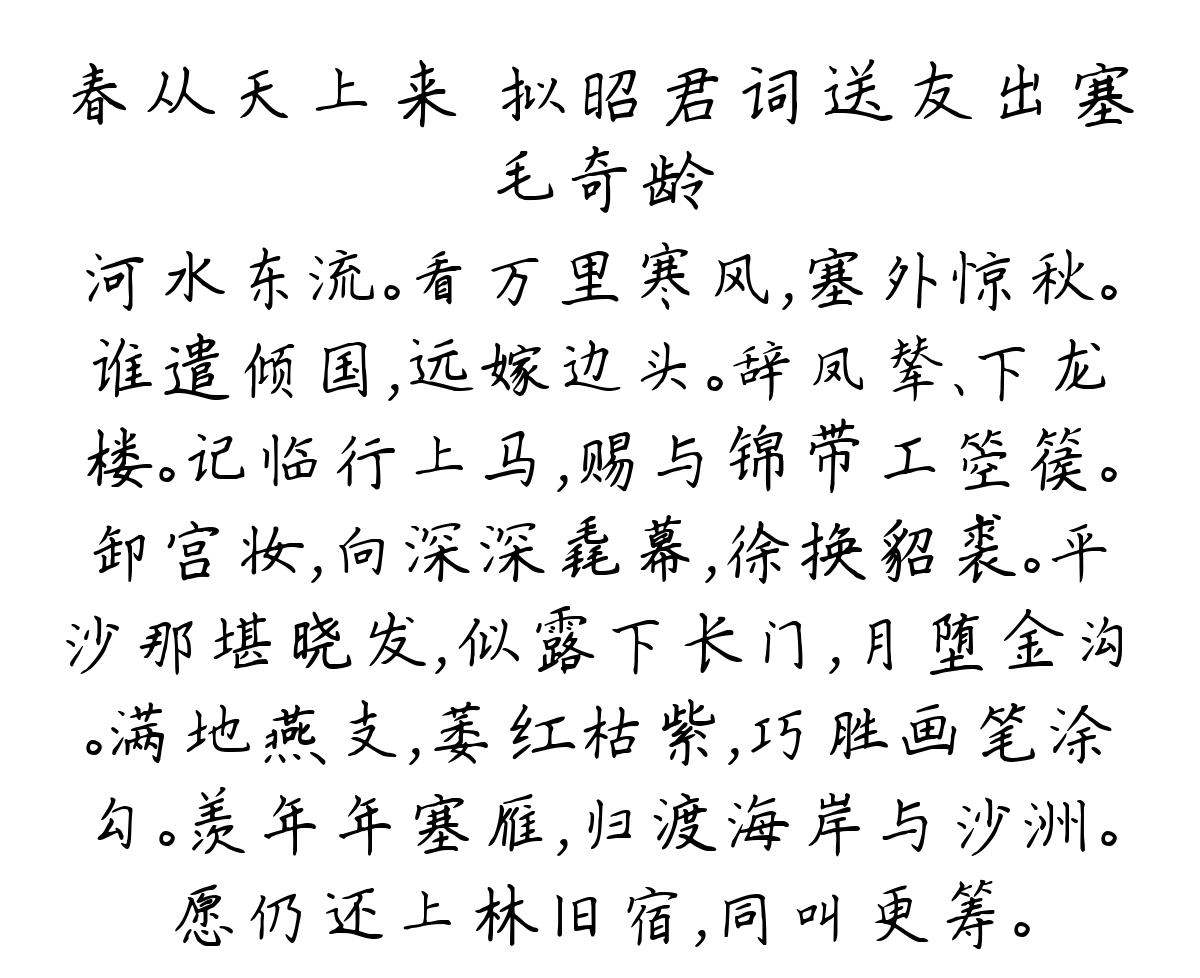 春从天上来 拟昭君词送友出塞
毛奇龄
河水东流。看万里寒风,塞外惊秋。
谁遣倾国,远嫁边头。辞凤辇、下龙
楼。记临行上马,赐与锦带工箜篌。
卸宫妆,向深深毳幕,徐换貂裘。平
沙那堪晓发,似露下长门,月堕金沟
。满地燕支,萎红枯紫,巧胜画笔涂
勾。羡年年塞雁,归渡海岸与沙洲。
愿仍还上林旧宿,同叫更筹。